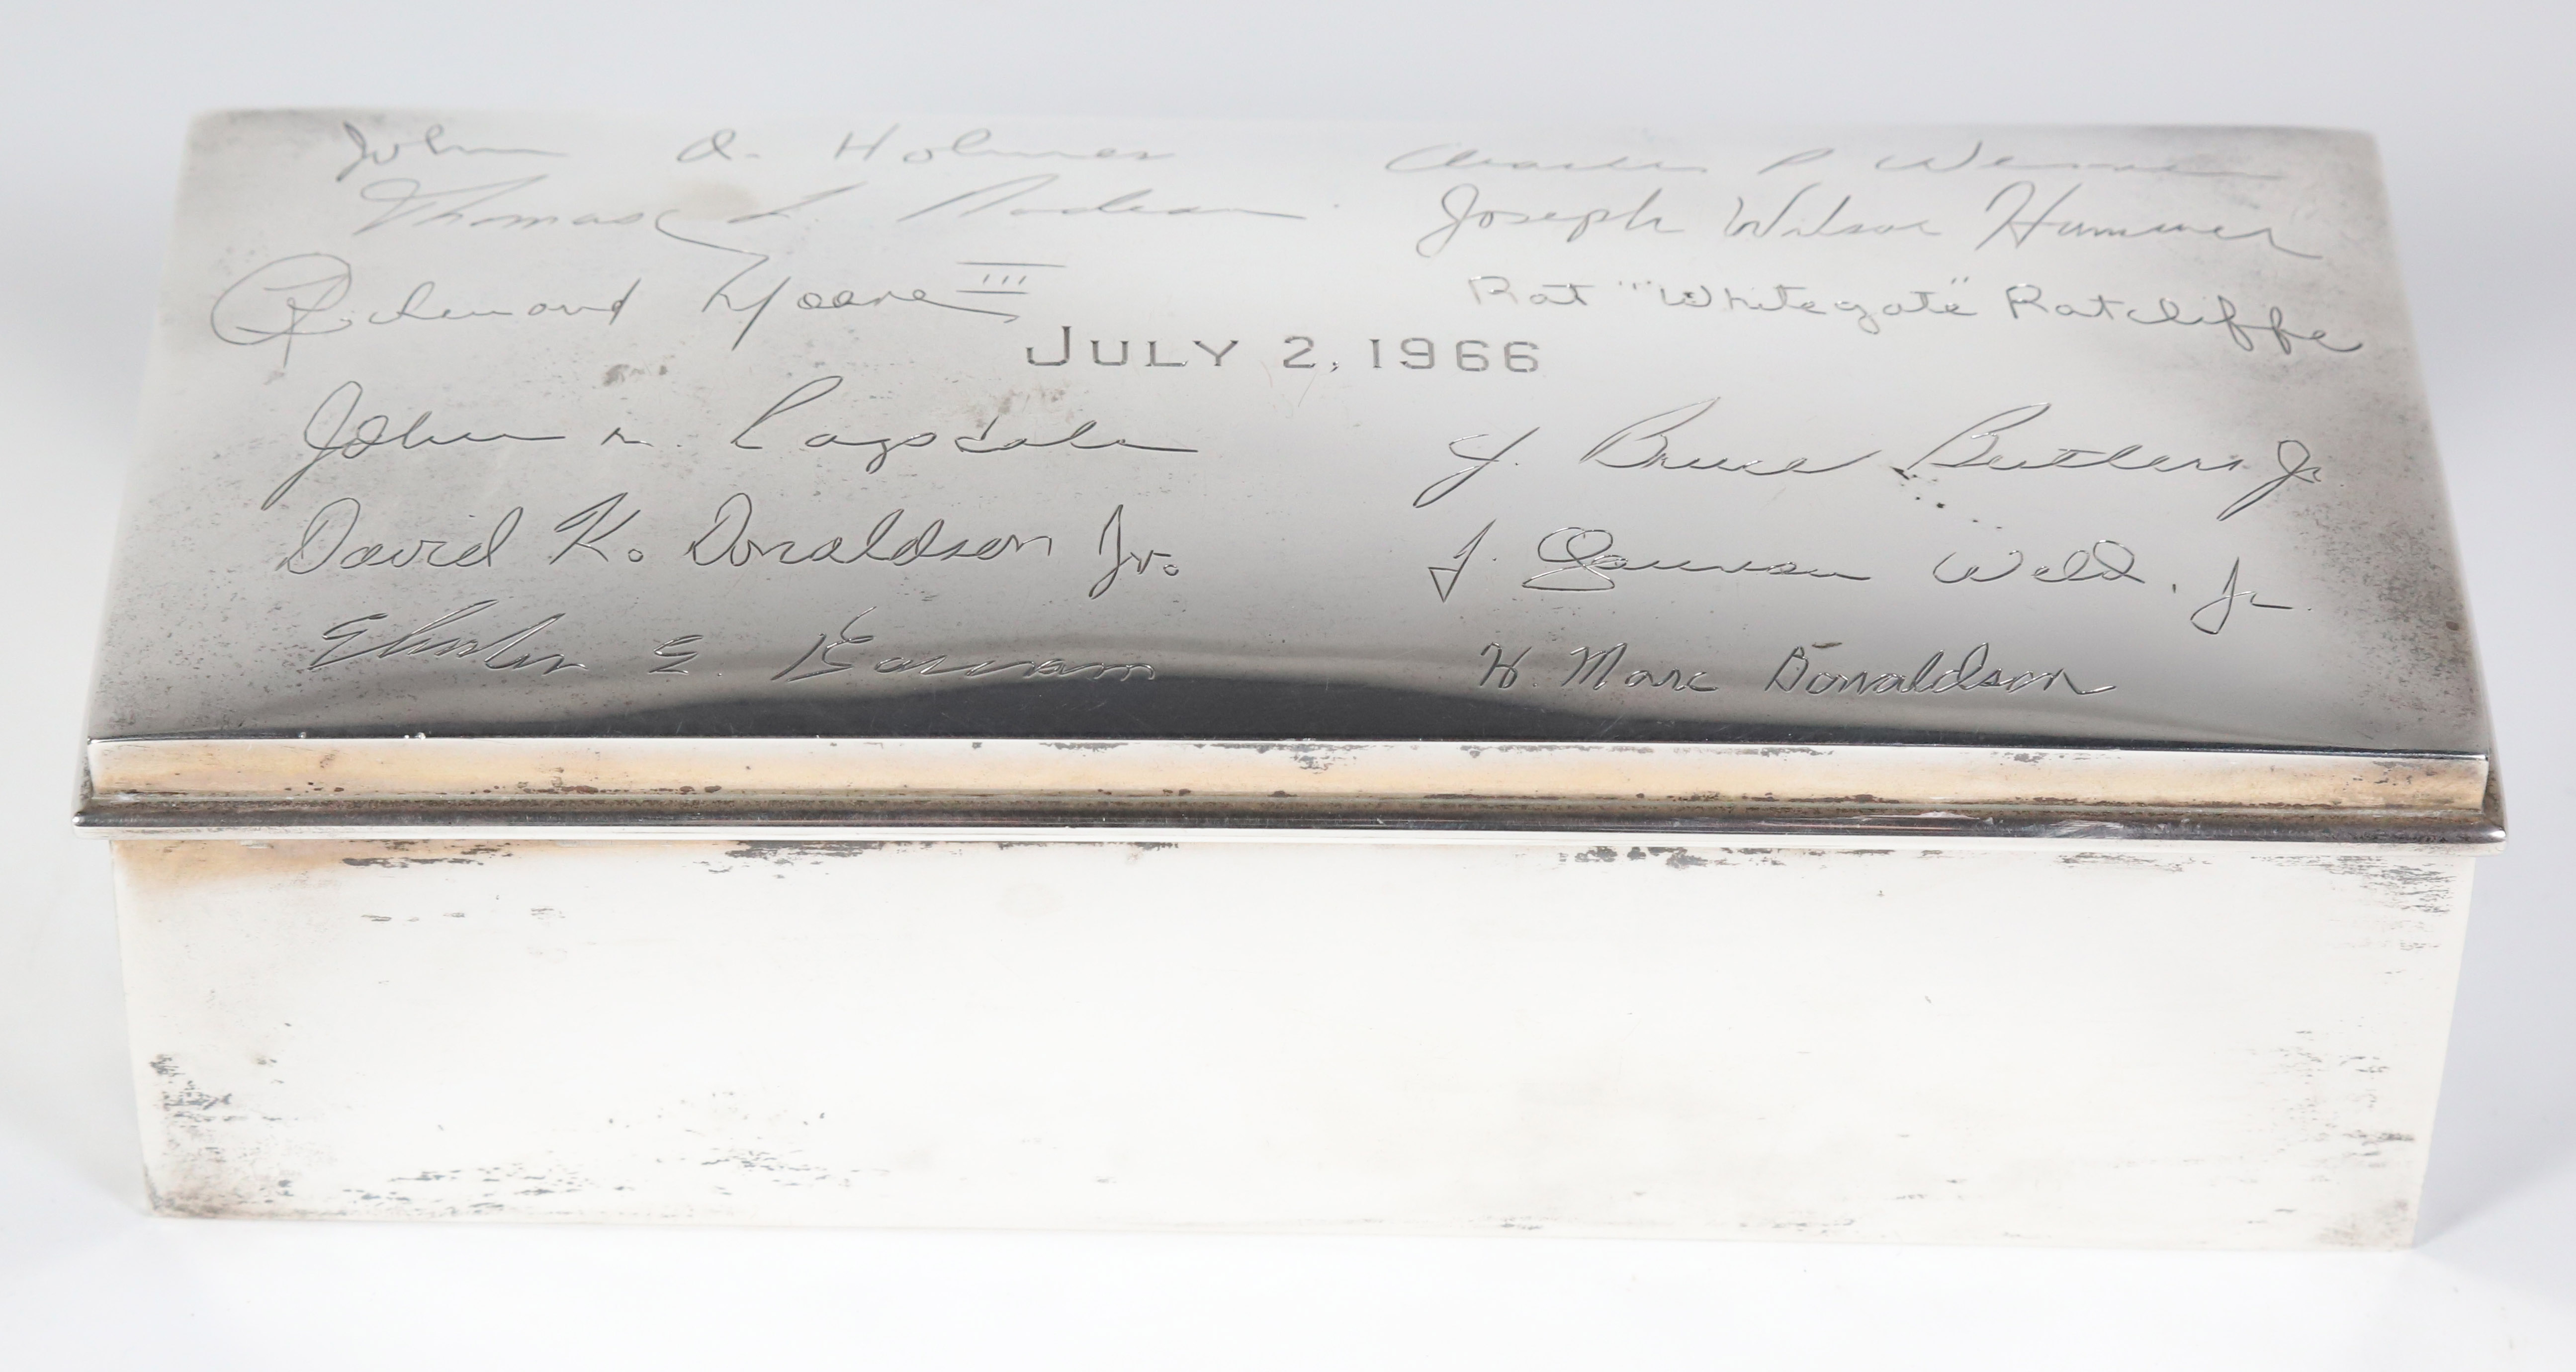 John A. Holmes
Thomas L.
Richmond Moore III
Charles P
Joseph Wilson Hummer
Rat "Whitegate" Ratcliffe
JULY 2, 1966
John Ragsdale
David K. Donaldson Jr.
E.
J. Bruce Butler Jr
J. Weld, Jr.
W. Marc Donaldson